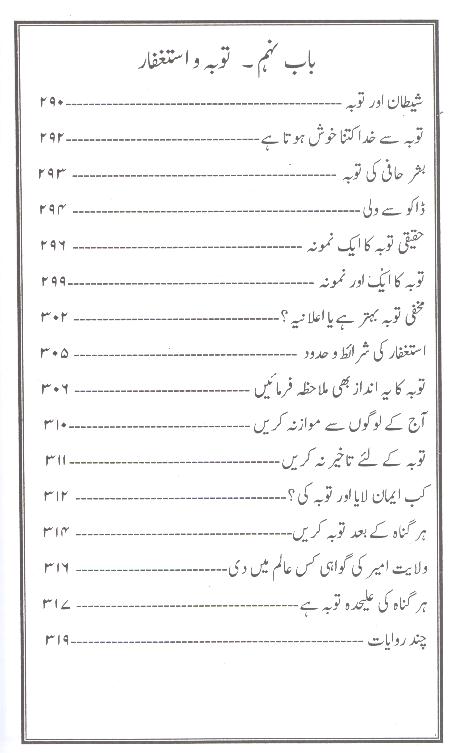 باب نہم ۔ توبہ و استغفار
شیطان اور توبہ ------------------------------ ۲۹۰
توبہ سے خدا کتنا خوش ہوتا ہے ------------------------------ ۲۹۲
بشر حافی کی توبہ ------------------------------ ۲۹۳
ڈاکو سے ولی ------------------------------ ۲۹۴
حقیقی توبہ کا ایک نمونہ ------------------------------ ۲۹۶
توبہ کا ایک اور نمونہ ------------------------------ ۲۹۹
مخفی توبہ بہتر ہے یا اعلانیہ؟ ------------------------------ ۳۰۲
استغفار کی شرائط و حدود ------------------------------ ۳۰۵
توبہ کا یہ انداز بھی ملاحظہ فرمائیں ------------------------------ ۳۰۶
آج کے لوگوں سے موازنہ کریں ------------------------------ ۳۱۰
توبہ کے لئے تاخیر نہ کریں ------------------------------ ۳۱۱
کب ایمان لایا اور توبہ کی؟ ------------------------------ ۳۱۲
ہر گناہ کے بعد توبہ کریں ------------------------------ ۳۱۴
ولایت امیر کی گواہی کس عالم میں دی ------------------------------ ۳۱۶
ہر گناہ کی علیحدہ توبہ ہے ------------------------------ ۳۱۷
چند روایات ------------------------------ ۳۱۹